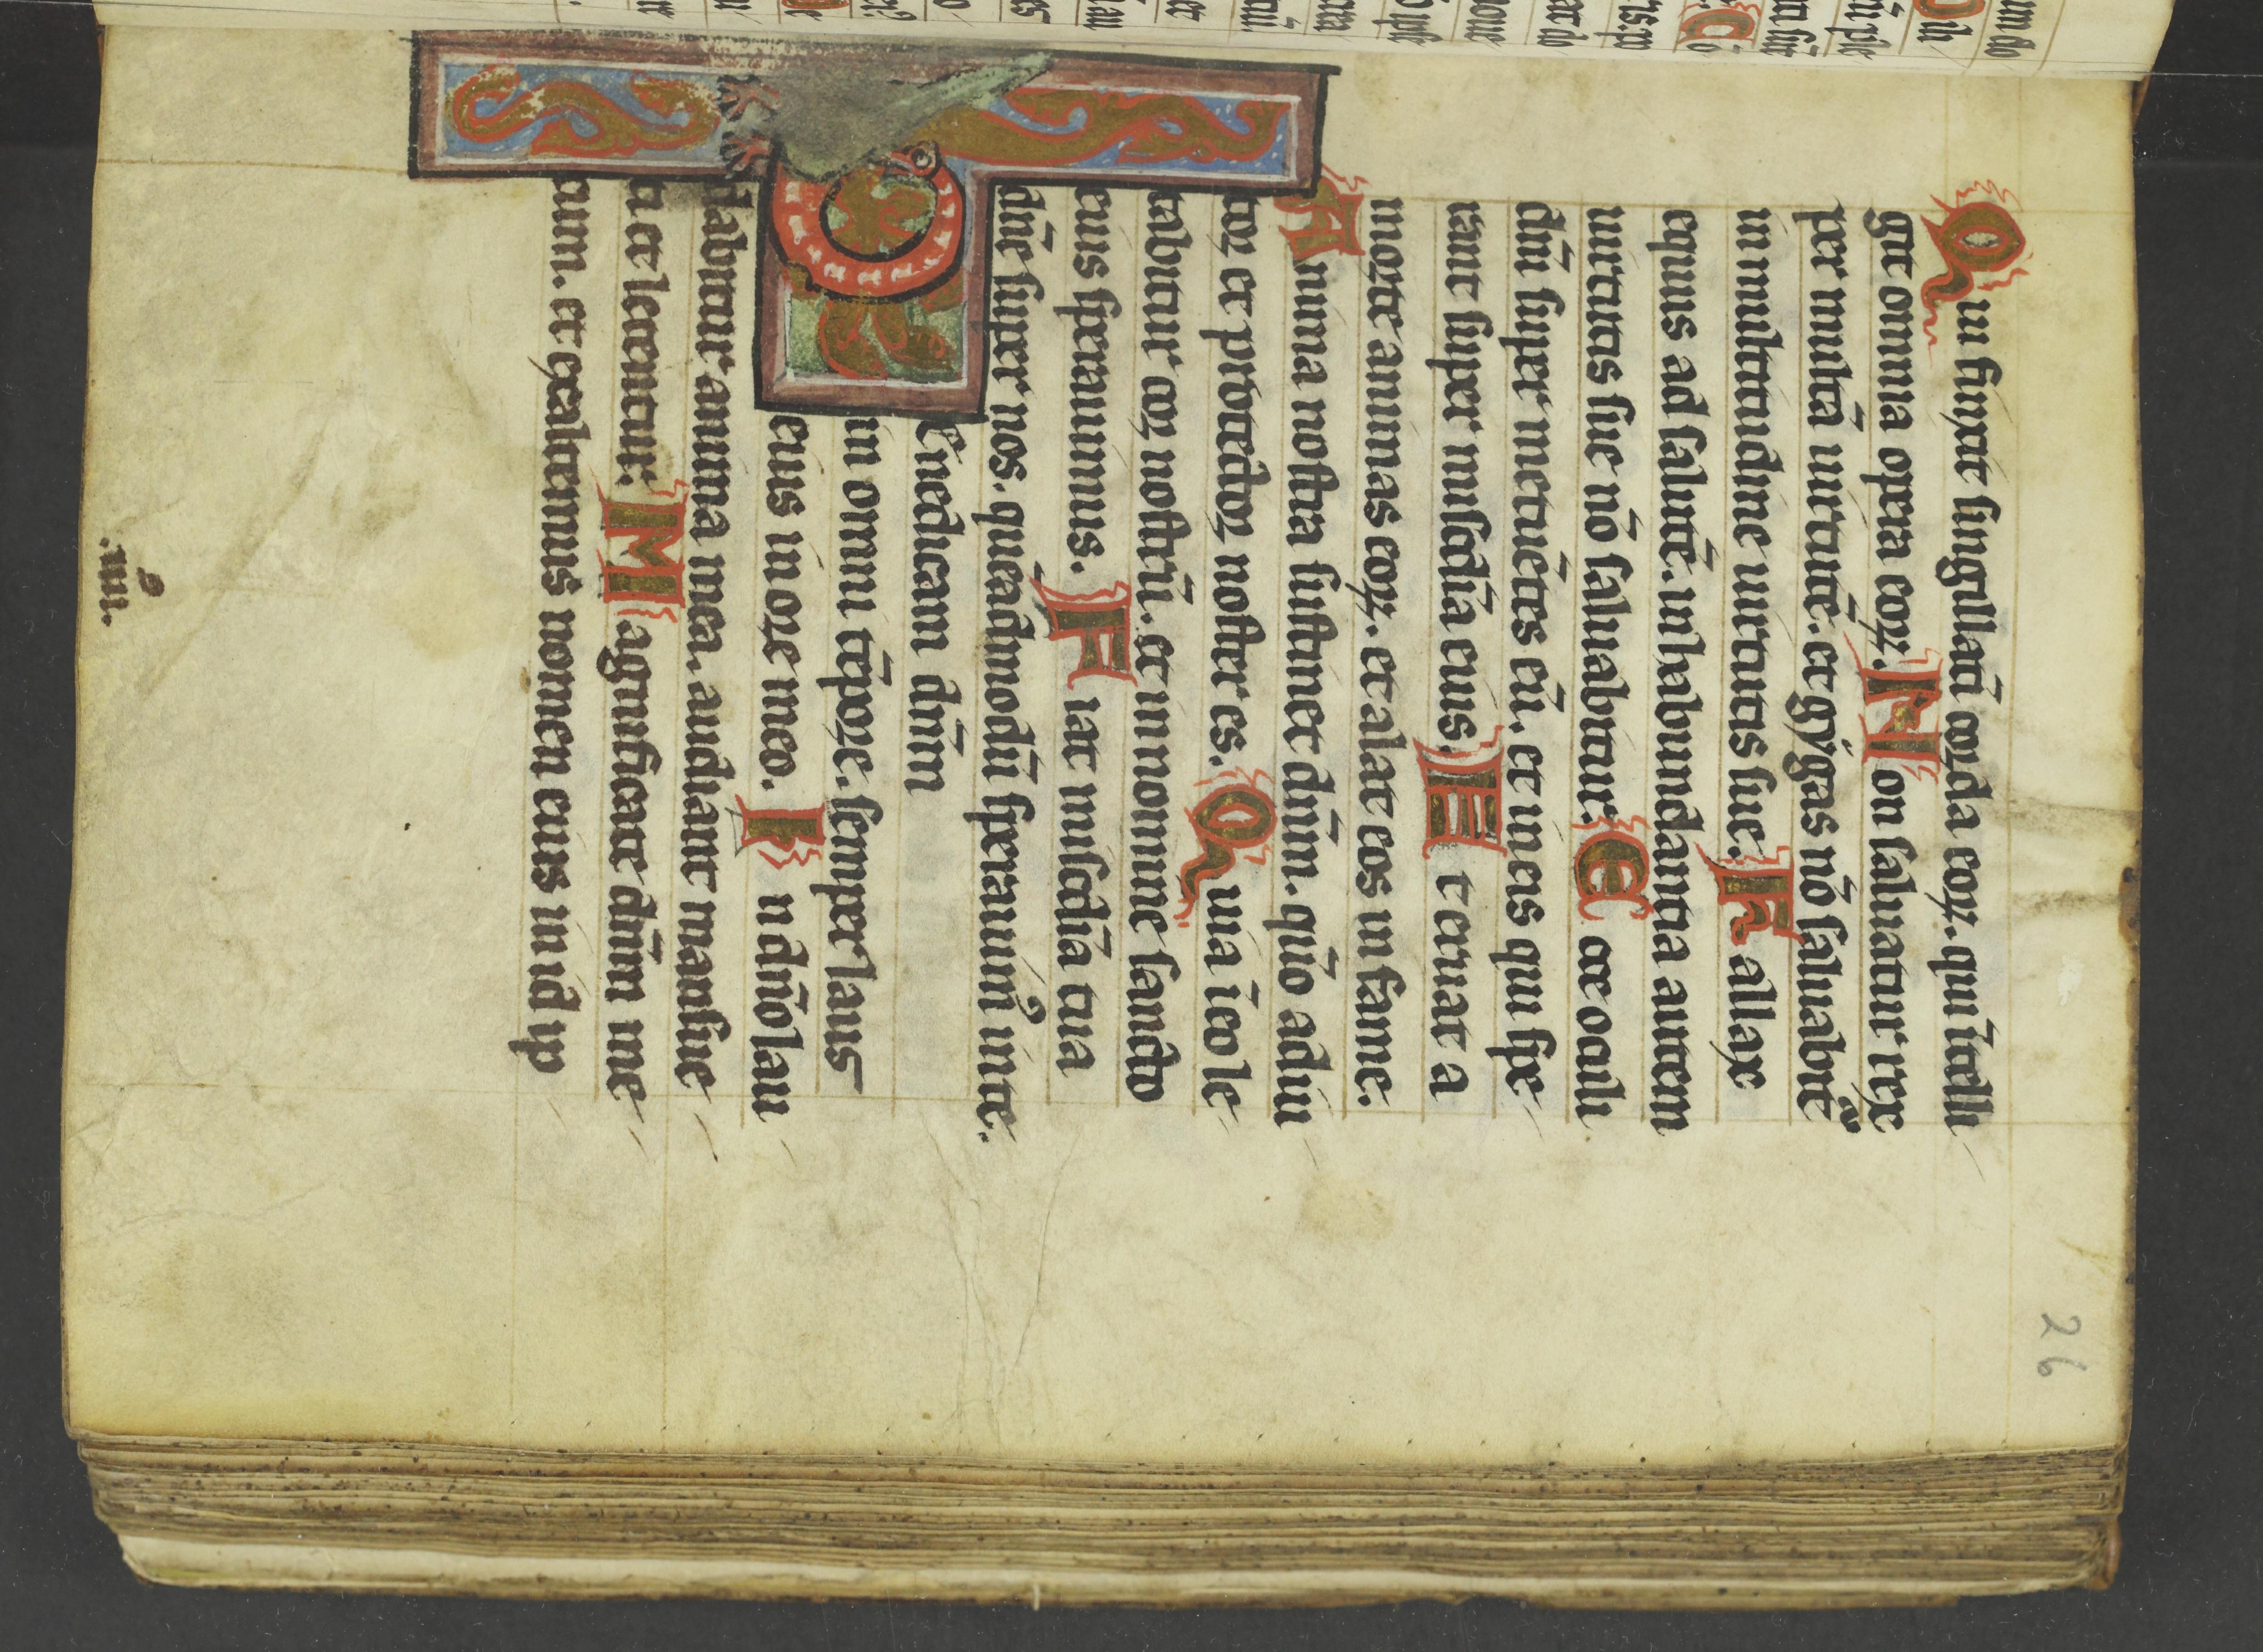 26
Qui finxit singillatī coꝛda eoꝝ. qui ītelli
git omnia opera eoꝝ. Non saluatur rex
per multā uirtutē. et gygas nō saluabit᷑
in multitudine uirtutis sue. Fallax
equus ad salutē. in habundantia autem
uirtutis sue nō saluabitur. Ecce oculi
dn̄i super metuētes eū. et in eis qui spe
rant super mis̄cdīa eius. Et eruat a
moꝛte animas eoꝝ. et alat eos in fame.
Anima nostra sustinet dn̄m. qm̄o adiu
toꝛ et protectoꝛ noster es. Quia ī eo le
tabitur coꝛ nostrū. et in nomine sancto
eius sperauimus. Fiat mis̄cdīa tua
dn̄e super nos. quēadmodū sperauim᷒ in te.
Benedicam dn̄m
in omni tēpoꝛe. semper laus
eius in oꝛe meo. In dn̄o lau
dabitur anima mea. audiant mansue
ti et letentur. Magnificate dn̄m me
cum. et exaltemus nomen eius in id ip
.iiii.